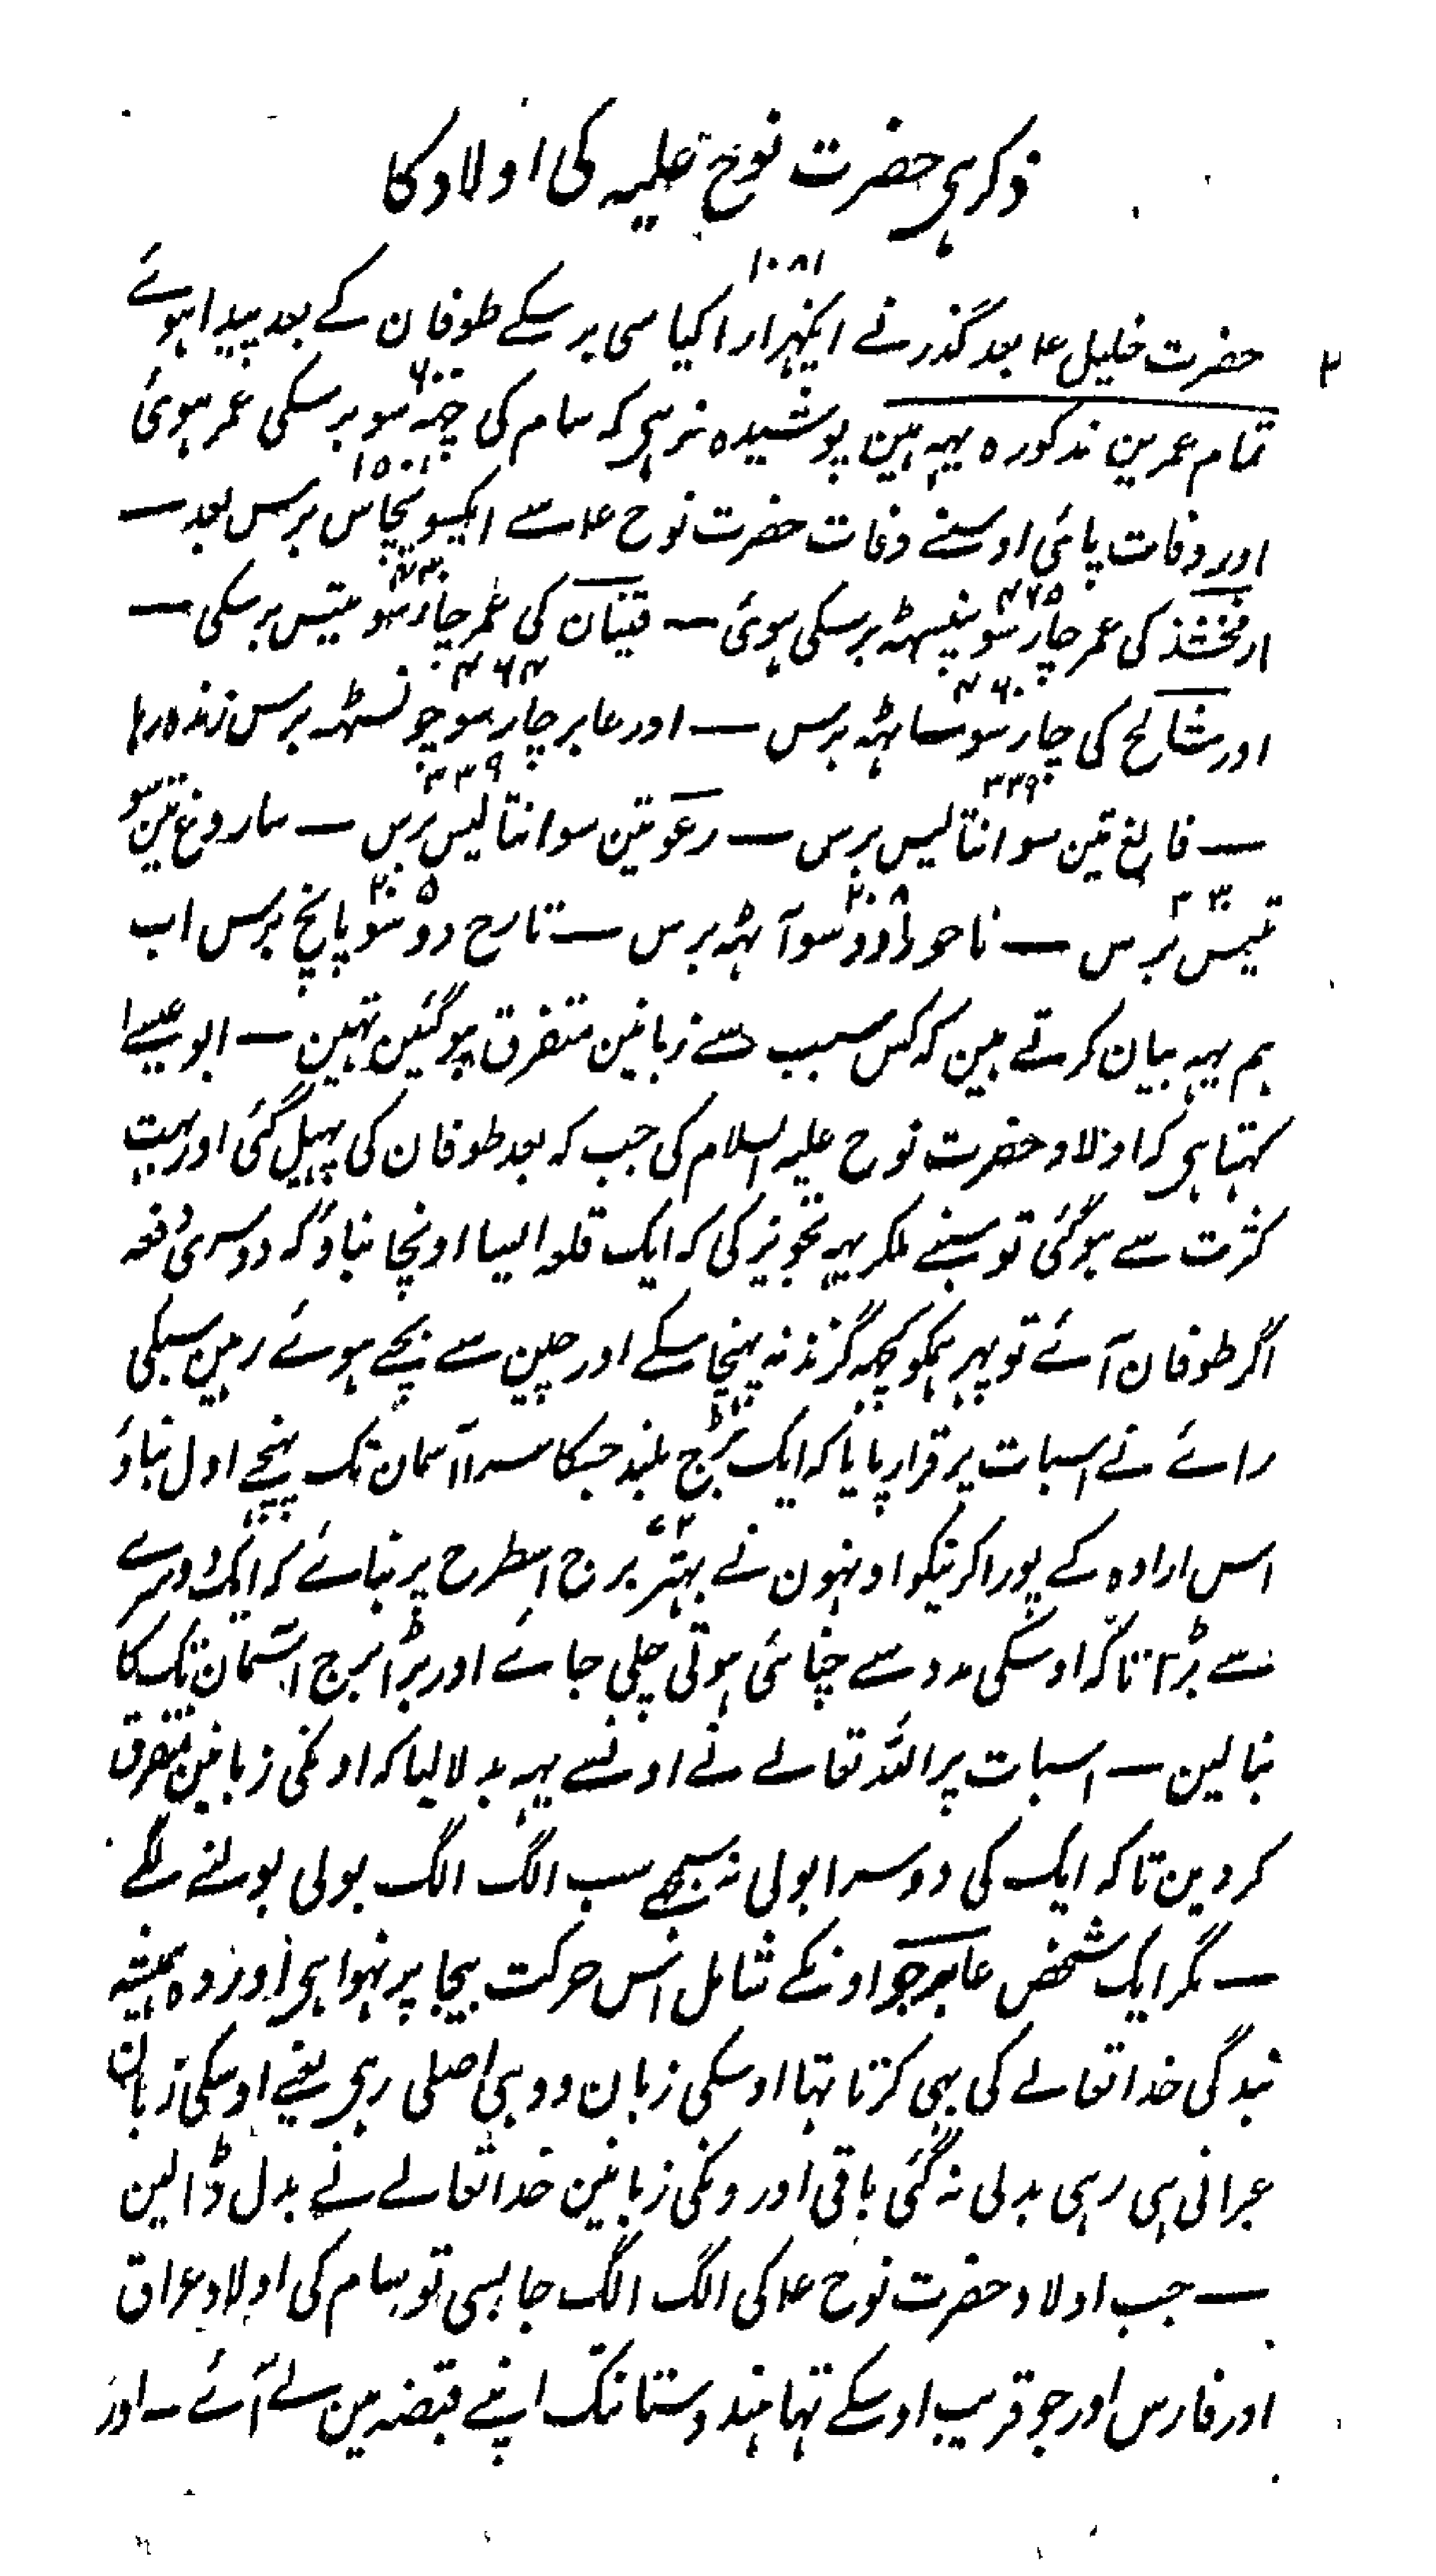 ذکر ہی حضرت نوح علیہ کی اولاد کا
۱۰۸۱
حضرت خلیل ع بعد گذرنے ایکہزار اکیاسی برسکے طوفان کے بعد پیدا ہوئے
۶۰۰
تمام عمرین مذکورہ یہہ ہین پوشیدہ نرہی کہ سام کی چہہ سو برسکی عمر ہوئی
۱۵۰
اور وفات پائی اوسنے وفات حضرت نوح ع سے ایکسو پچاس برس بعد —
۴۶۵ ۴۳۰
ارفخشذ کی عمر چار سو پینسہٹہ برسکی ہوئی — قینان کی عمر چار سو تیس برسکی —
۴۶۰ ۴۶۴
اور شالح کی چار سو ساہٹہ برس — اور عابر چار سو چونسٹہہ برس زندہ رہا
۳۳۹ ۳۳۹
— فالغ تین سو انتالیس برس — رعو تین سو انتالیس برس — ساروغ تین سو
۳۳۰ ۲۰۸ ۲۰۵
تیس برس — ناحور دو سو آہٹہ برس — تارح دو سو پانچ برس اب
ہم یہہ بیان کرتے ہین کہ کس سبب سے زبانین متفرق ہو گئین تہین — ابو عیسے
کہتا ہی کہ اولاد حضرت نوح علیہ السلام کی جب کہ بعد طوفان کی پہیل گئی اور بہت
کثرت سے ہو گئی تو سبنے ملکر یہہ تجویز کی کہ ایک قلعہ ایسا اونچا بناؤ کہ دوسری دفعہ
اگر طوفان آئے تو پہر ہمکو کچہہ گزند نہ پہنچا سکے اور چین سے بچے ہوئے رہین سبکی
رائے نے اسبات پر قرار پایا کہ ایک برج بلند جسکا سرا آسمان تک پہنچے اول بناؤ
۷۲
اس ارادہ کے پورا کرنیکو اونہون نے بہتر برج اسطرح پر بنائے کہ ایک دوسرے
سے بڑا تا کہ اوسکی مدد سے چنائی ہوتی چلی جائے اور بڑا برج آسمان تک کا
بنا لین — اسبات پر اللہ تعالے نے اونسے یہہ بدلا لیا کہ اونکی زبانین متفرق
کر دین تاکہ ایک کی دوسرا بولی نہ سمجھے سب الگ الگ بولی بولنے لگے
— مگر ایک شخص عابر جو اونکے شامل اس حرکت بیجا پر نہوا ہی اور وہ ہمیشہ
بندگی خدا تعالے کی ہی کرتا تہا اوسکی زبان وہ ہی اصلی رہی یعنے اوسکی زبان
عبرانی ہی رہی بدلی نہ گئی باقی اور ونکی زبانین خدا تعالے نے بدل ڈالین
— جب اولاد حضرت نوح ع کی الگ الگ جا بسی تو سام کی اولاد عراق
اور فارس اور جو قریب اوسکے تہا ہندوستانتک اپنے قبضہ مین لے آئے — اور